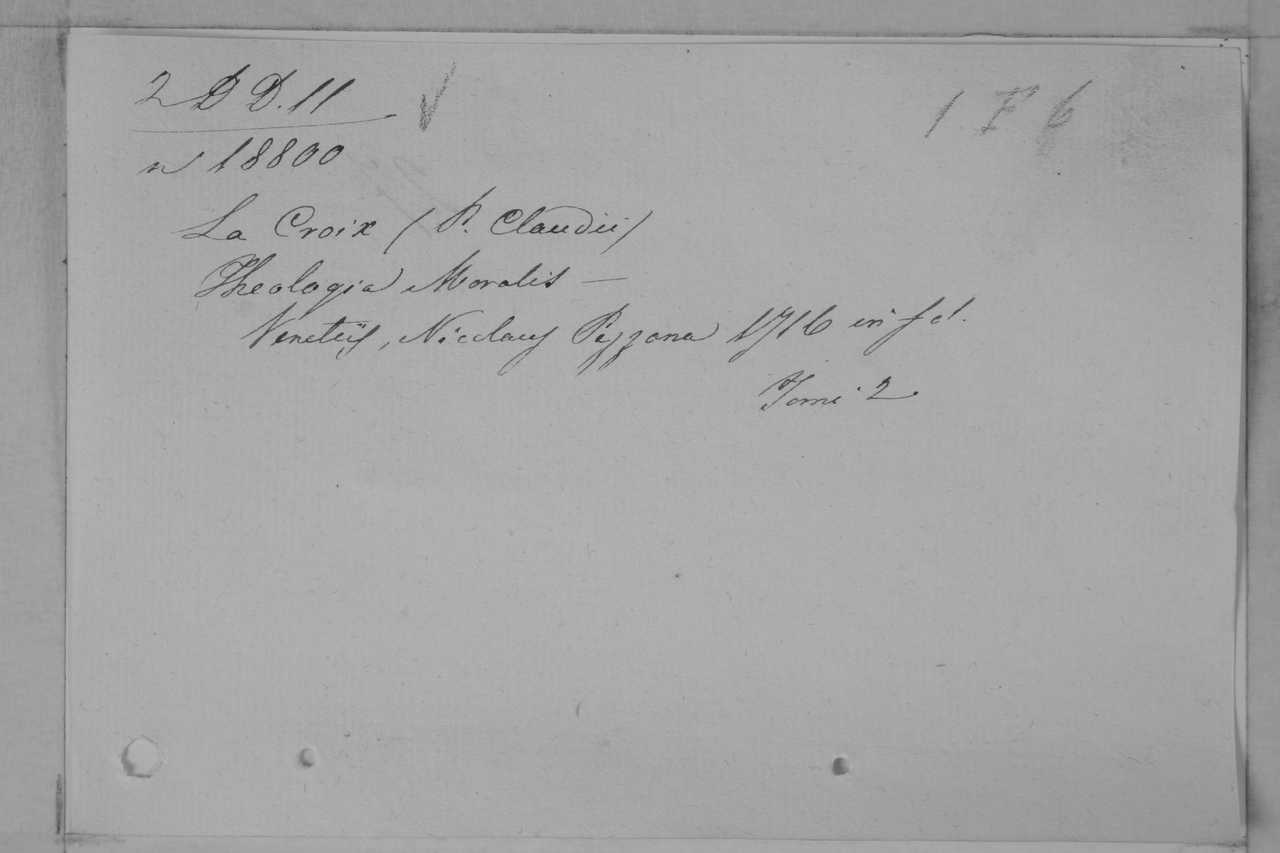 2 D D. 11
1 F 6
n 18800
La Croix (P. Claudii)
Theologia Moralis —
Venetiis, Nicolaus Pezzana 1716 in fol.
Tomi 2.